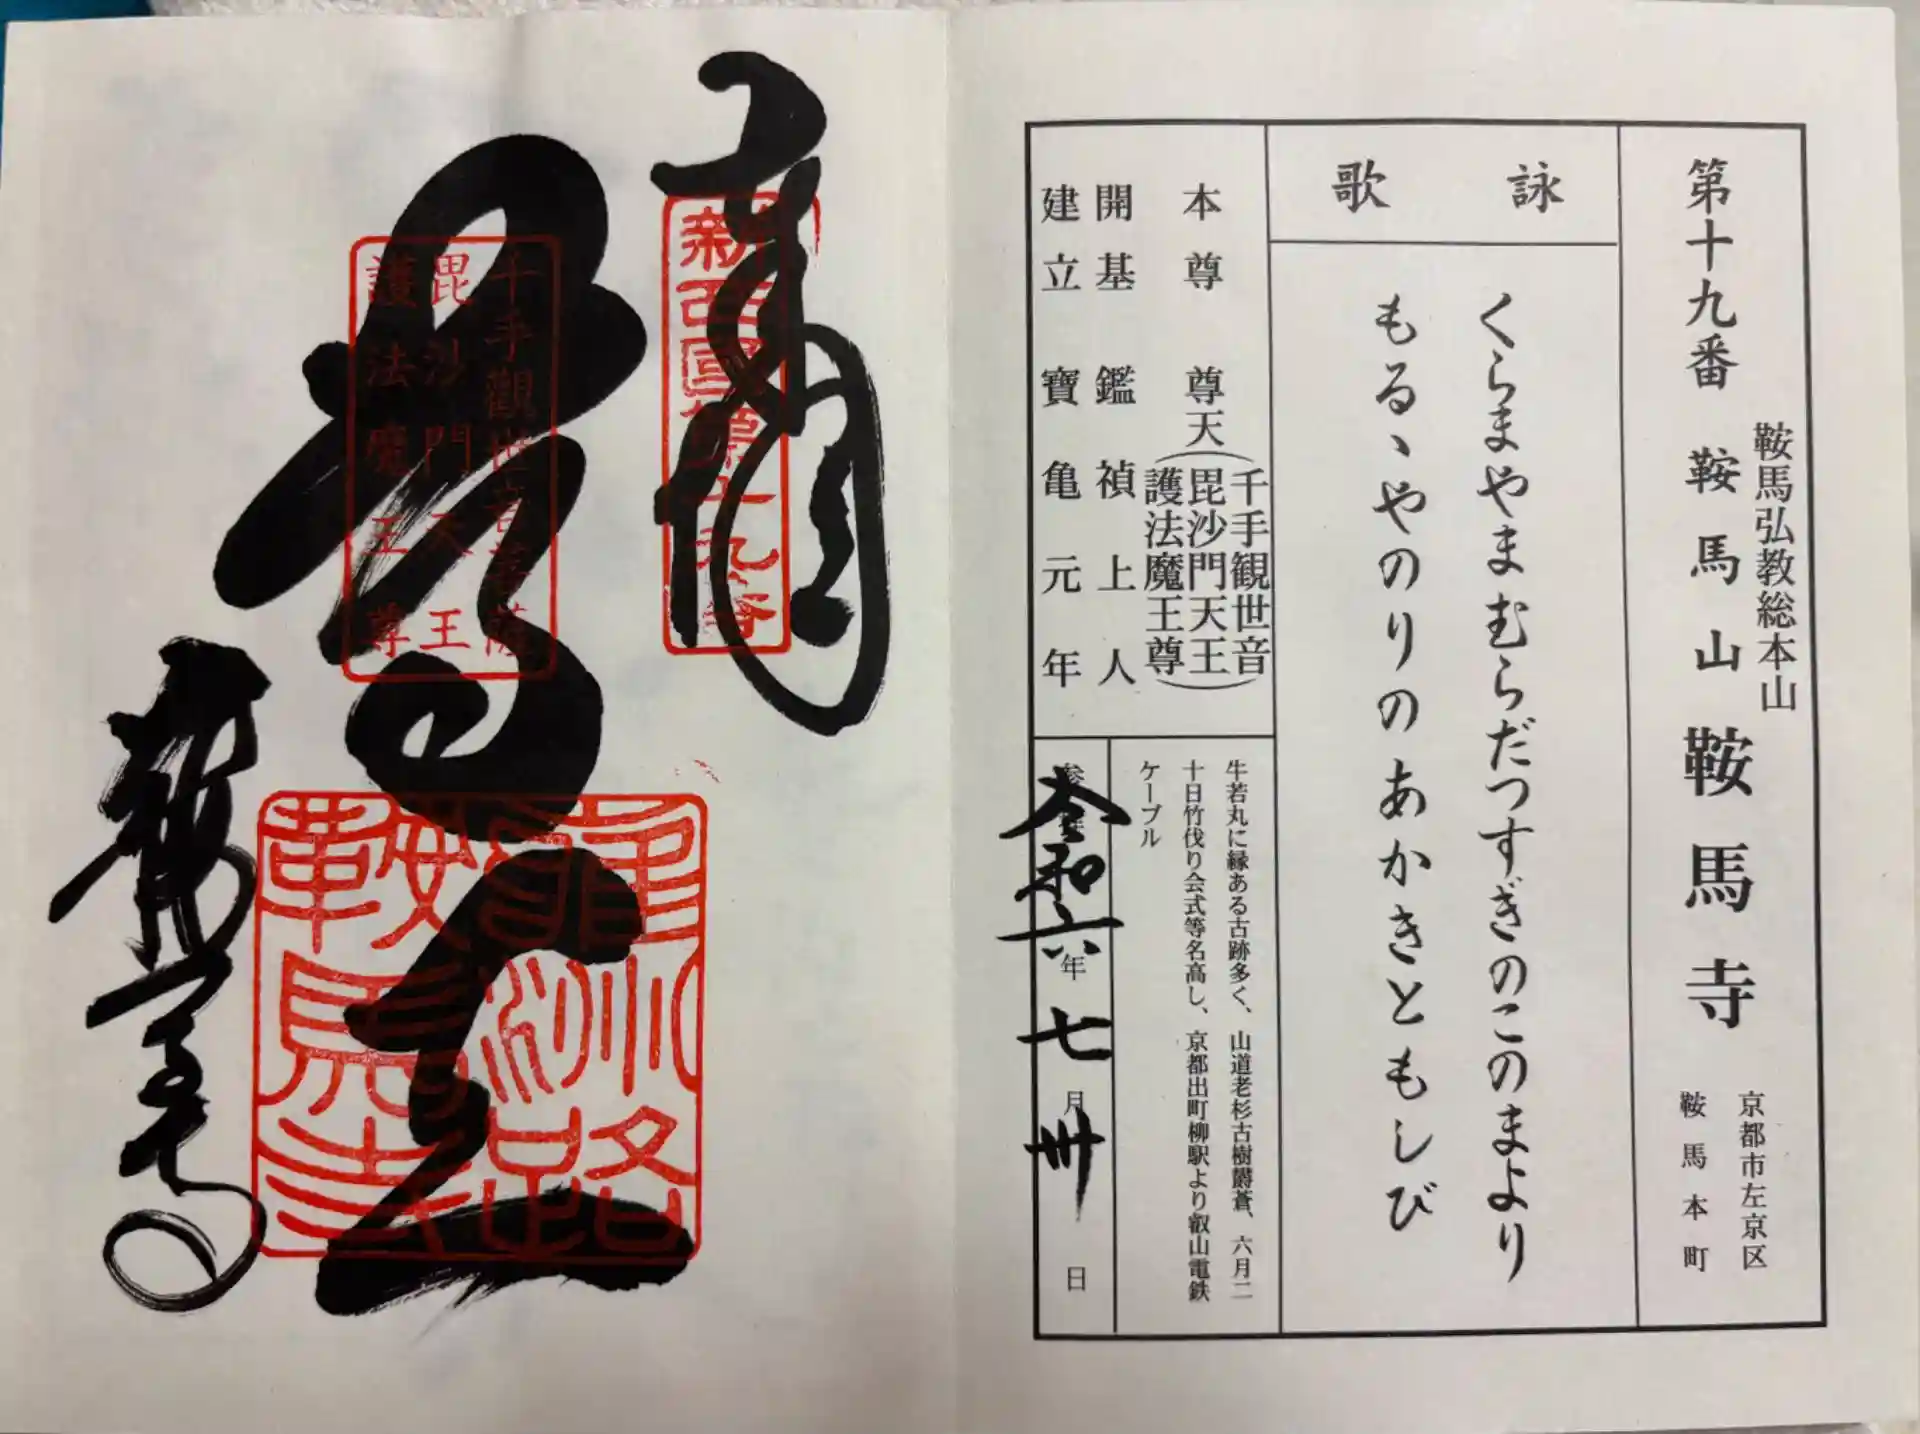 第十九番 鞍馬山 鞍馬寺
鞍馬弘教総本山
京都市左京区
鞍馬本町
詠歌
くらまやまむらだつすぎのこのまより
もるゝやのりのあかきともしび
本尊 尊天
千手観世音
毘沙門天王
護法魔王尊
開基 鑑禎上人
建立 寶亀元年
牛若丸に縁ある古跡多く、山道老杉古樹欝蒼、六月二
十日竹伐り会式等名高し、京都出町柳駅より叡山電鉄
ケーブル
令和六年七月卅日
奉拝
新西國第十九番
尊天
千手觀世音菩薩
毘沙門天王
護法魔王尊
鞍馬寺
鞍馬寺